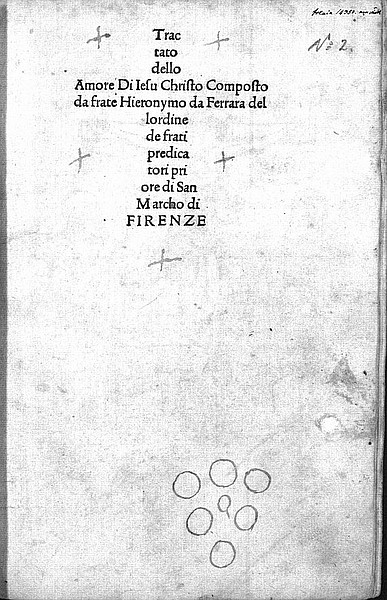 Nº 2
Trac
tato
dello
Amore Di Iesu Christo Composto
da frate Hieronymo da Ferrara del
lordine
de frati
predica
tori pri
ore di San
Marcho di
FIRENZE